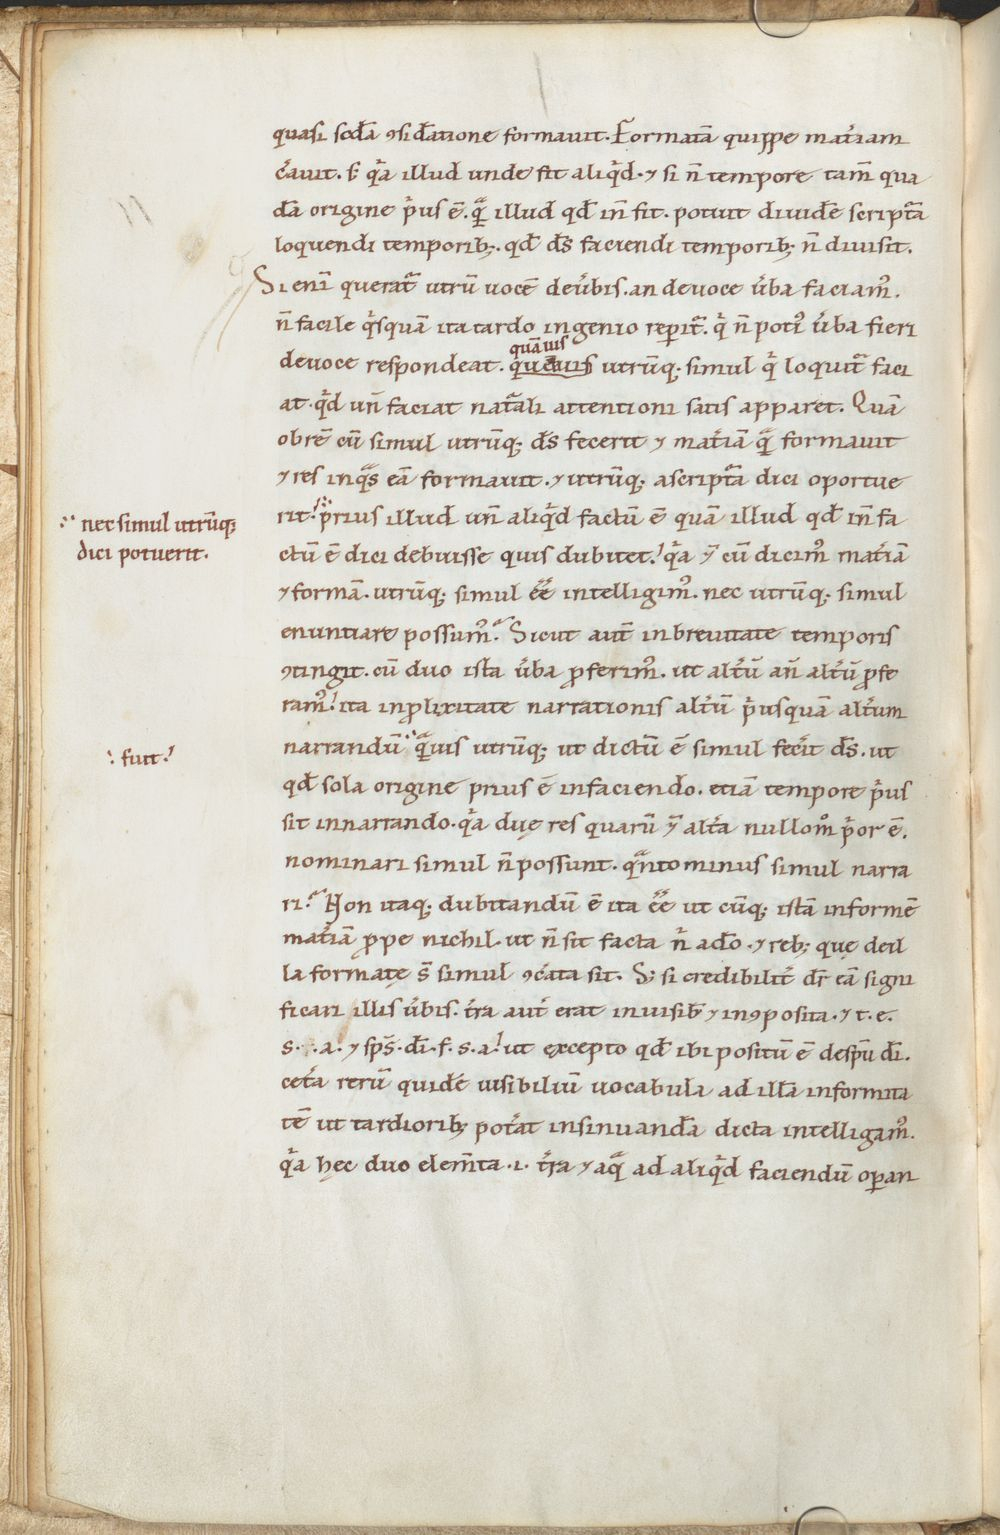 quasi scd̄a ꝯsid̄atione formauit. Formatā quippe mat̓iam
c̓auit. s̄ qͥa illud unde fit aliqͥd. ⁊ si n̄ tempore tam̄ qua
dā origine pͥus ē. qᷓ illud qđ in̄ fit. potuit diuid̄e scriptᷓa
loquendi temporibꝫ. qđ d̄s faciendi temporibꝫ n̄ diuisit.
Si eni̅ queratᷓ utrū uocē de u̓bis. an de uoce u̓ba faciamꝰ.
n̄ facile qͥsquā ita tardo ingenio reperitᷓ. qͥ n̄ potiꝰ u̓ba fieri
quāuis
de uoce respondeat. queauis utrūqꝫ simul qͥ loquitᷓ faci
at. qͥd un̄ faciat nat̓ali attentioni satis apparet. Quā
obrē cū simul utrūqꝫ d̄s fecerit ⁊ mat̓iā qᷓ formauit
⁊ res in qᷓs eā formauit. ⁊ utrūqꝫ a scriptᷓa dici oportue
rit. pͥrius illud un̄ aliqͥd factū ē quā illud qđ in̄ fa
∴ nec simul utrūqꝫ
dici potuerit.
ctū ē dici debuisse quis dubitet. qͥa ⁊̄ cū dicimꝰ mat̓iā
⁊ formā. utrūqꝫ simul ee̅ intelligimꝰ. nec utrūqꝫ simul
enuntiare possumꝰ. Sicut aut̄ in breuitate temporis
ꝯtingit. cū duo ista u̓ba ꝓferimꝰ. ut alt̓ū an̄ alt̓ū ꝓfe
ramꝰ. ita in ꝓlixitate narrationis alt̓ū pͥusquā alt̓um
narrandū ∴ qᷓuis utrūqꝫ ut dictū ē simul fec̓it d̄s. ut
∴ fuit.
qđ sola origine prius ē in faciendo. etiā tempore pͥus
sit in narrando. qͥa duę res quarū ⁊̄ alt̓a nullomͦ pͥor ē.
nominari simul n̄ possunt. qᷓnto minus simul narra
ri. Non itaqꝫ dubitandū ē ita ee̅ ut cūqꝫ istā informē
mat̓iā ꝓpe nichil. ut n̄ sit facta n̓ a dō. ⁊ rebꝫ quę de il
la formatę s̄ simul ꝯc̓ata sit. Sꝫ si credibilit̓ dr̄ eā signi
ficari illis u̓bis. t̓ra aut̓ erat inuisibꝉ ⁊ inꝯposita. ⁊ t. e.
s. . a. ⁊ sps̄. dī. f. s. a. ut excepto qđ ibi positū ē de spū dī.
cet̓a rerū quidē uisibiliū uocabula ad illā informita
tē ut tardioribꝫ pot̓at insinuandā dicta intelligamꝰ.
qͥa hęc duo elem̄ta .i. t̓ra ⁊ aqᷓ ad aliqͥd faciendū oꝑan